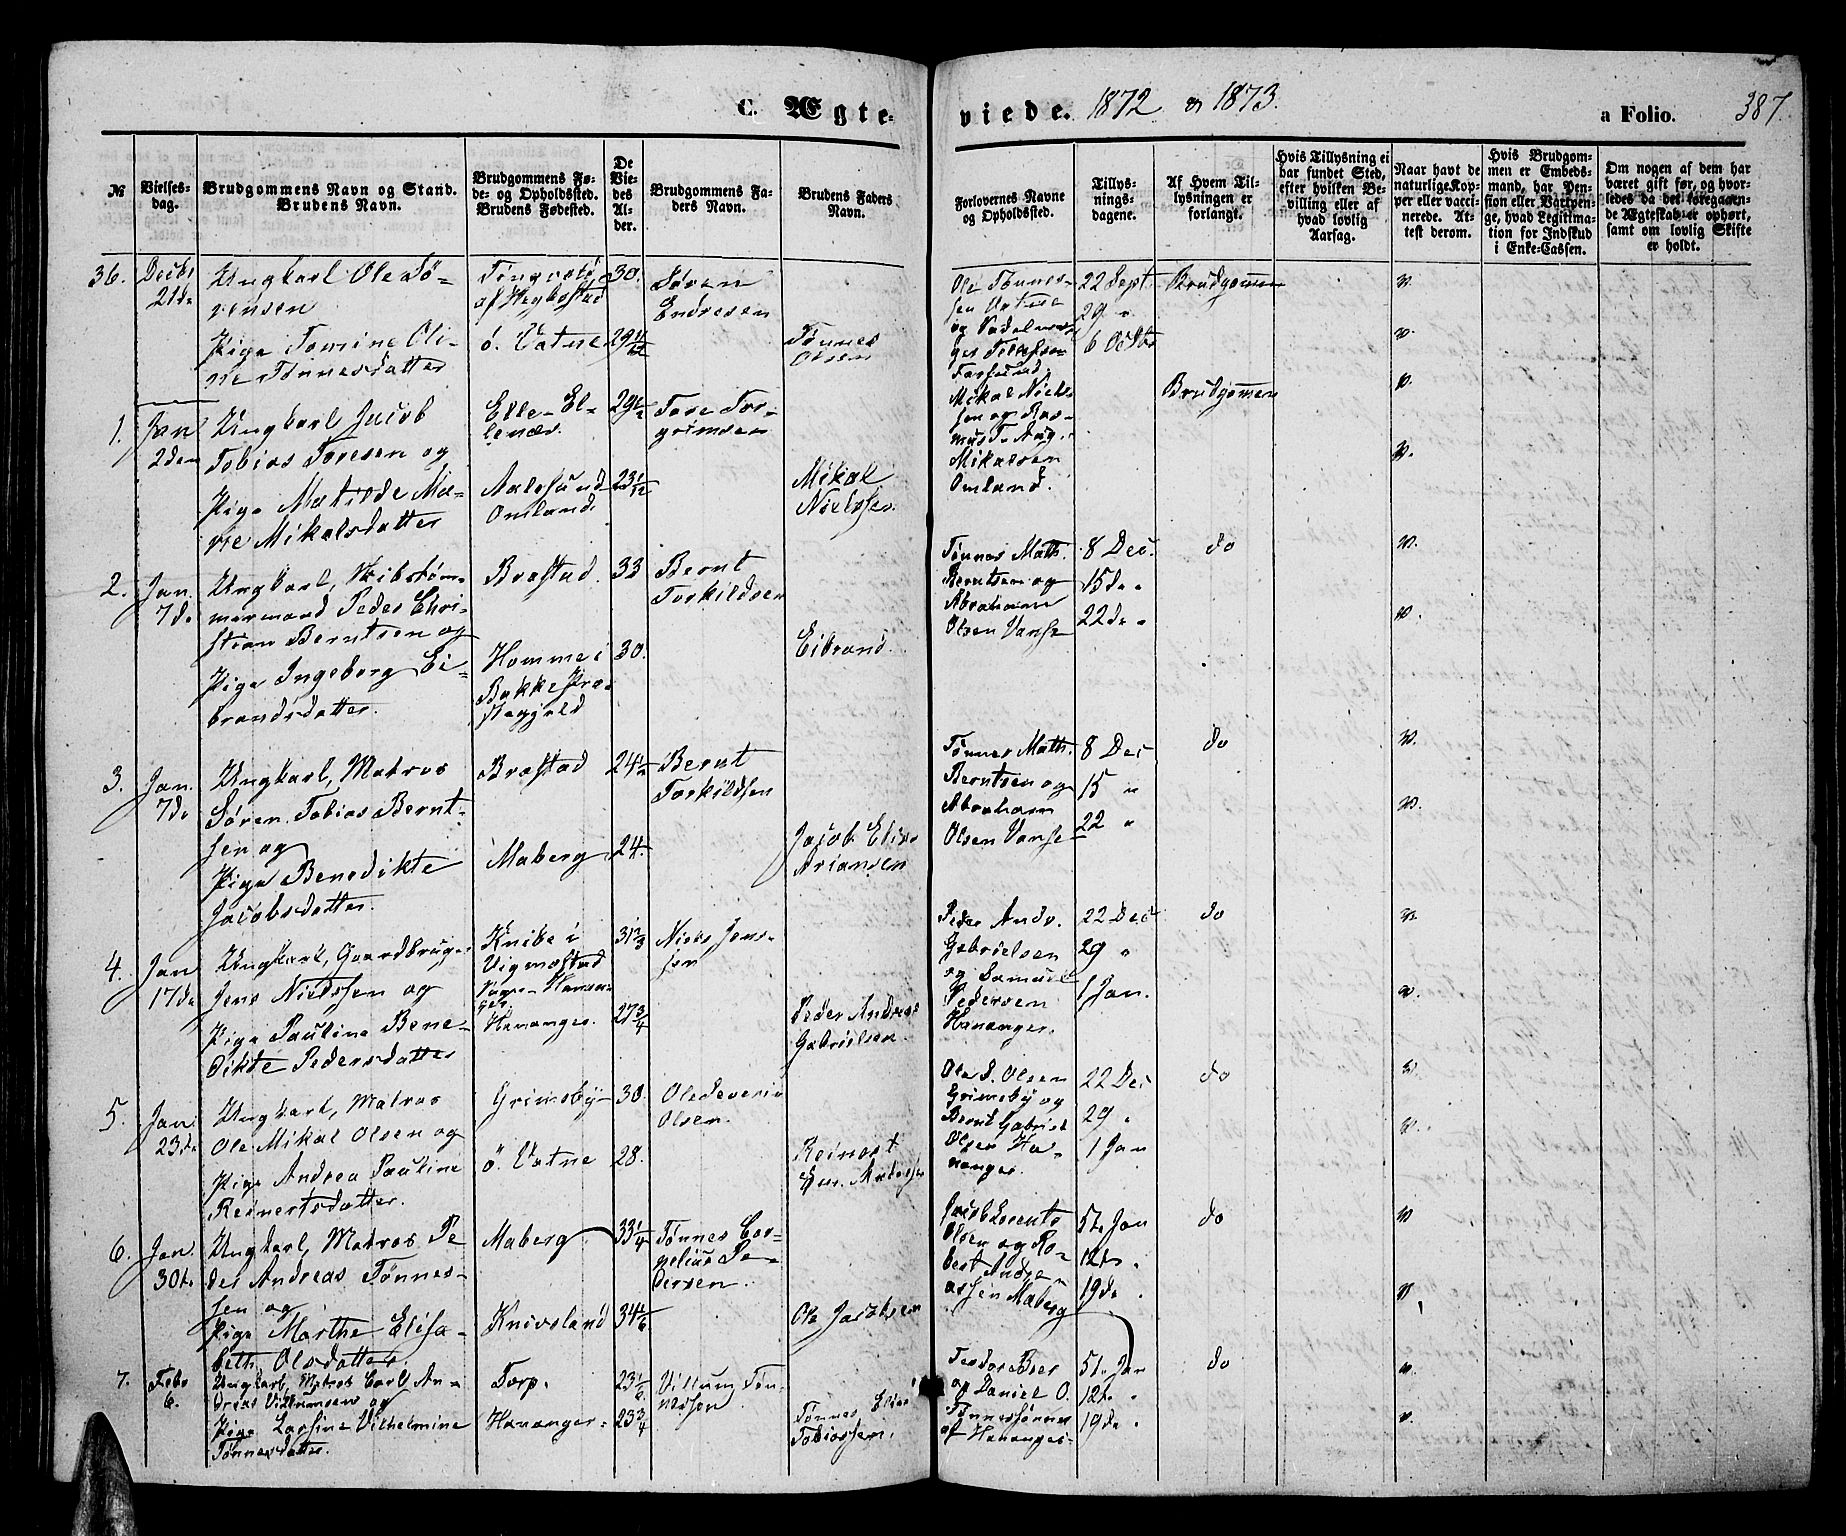 C. Ægte-
viede. 1872 og 1873.
a Folio. 387
№
Vielses-
dag.
Brudgommens Navn og Stand.
Brudens Navn.
Brudgommens Fø-
de- og Opholdssted.
Brudens Fødested.
De
Vie-
des
Al-
der.
Brudgommens Fa-
ders Navn.
Brudens Faders
Navn.
Forlovernes Navne
og Opholdssted.
Tillys-
nings-
dagene.
Af Hvem Til-
lysningen er
forlangt.
Hvis Tillysning ei
har fundet Sted,
efter hvilken Be-
villing eller af
hvad lovlig
Aarsag.
Naar havt de
naturlige Kop-
per eller vacci-
nerede. At-
test derom.
Hvis Brudgom-
men er Embeds-
mand, har Pen-
sion eller Vartpen-
ge, hvad Legitima-
tion for Indskud
i Enke-Cassen.
Om nogen af dem har
været gift før, og hvor-
ledes da det foregaaen-
de Ægteskab er ophørt,
samt om lovlig Skifte
er holdt.
36. Decbr 21de
Ungkarl Ole Sø-
rensen
Pige Tomine Oli-
ne Tønnesdatter
af Hegbostad
ø. Vatne
30.
29 11/12
Søren
Endresen
Tønnes
Olsen
Ole Tønnes-
sen Vatne
Farsund.
22 Sept.
29 "
6 Octbr
Brudgommen
v.
v.
1. Jan 2den
Ungkarl Jacob
Tobias Toresen og
Pige Matilde Ma-
rie Mikalsdatter
Elle- El-
lenæs.
Aalesund
Omland.
29 1/2
23 1/12
Tore Tor-
grimsen
Mikal
Nielssen.
Mikal Niels-
sen og Ras-
mus T. Aug.
Mikalsen
Omland.
Brudgommen
v.
v.
2. Jan. 7de
Ungkarl, Skibstøm-
mermand Peder Chri-
stian Berntsen og
Pige Ingeborg Ei-
brandsdatter.
Brastad.
Homme i
Bakke Præ-
stegjeld
33
30.
Bernt
Torkildsen
Eibrand.
Tønnes Math.
Berntsen og
Abraham
Olsen Vanse
8 Dec.
15de "
22de "
do
v.
v.
3. Jan. 7de
Ungkarl, Matros
Søren Tobias Bernt-
sen og
Pige Benedikte
Jacobsdatter.
Brastad
Maberg
24 1/2
24.
Bernt
Torkildsen
Jacob Elias
Ariansen
Tønnes Math.
Berntsen og
Abraham
Olsen Vanse
8 Dec
15 "
22 "
do
v.
v.
4. Jan 17de
Ungkarl, Gaardbruger
Jens Nielssen og
Pige Pauline Bene-
dikte Pedersdatter
Knibe i
Vigmostad
Hananger.
31 2/3
27 3/4
Niels Jens-
sen
Peder Andreas
Gabrielsen.
Peder Andr.
Gabrielsen
og Samuel
Pedersen
Hananger.
22 Dec
29 "
1 Jan.
do
v.
v.
5. Jan. 23de
Ungkarl, Matros
Ole Mikal Olsen og
Pige Andrea Pauline
Reinertsdatter.
Grimsby
ø. Vatne
30.
28.
Ole Severin
Olsen.
Reinert
Ole S. Olsen
Grimsby og
Bernt Gabriel
Olsen Ha-
nanger.
22 Dec
29 "
1 Jan
do
v.
v.
6. Jan. 30te
Ungkarl, Matros Pe
der Andreas Tønnes-
sen og
Pige Marthe Elisa-
beth Olsdatter.
Maberg
Knivsland
33 1/4
34 1/6
Tønnes Cor-
nelius Pe-
dersen
Ole Jacobsen
Jacob Lorents
Olsen og Ro-
bert Andre-
assen Maberg
5te Jan
12te "
19de "
do
v
v
7. Febr 6.
Ungkarl, Matros Carl An-
dreas Villumsen og
Pige Larsine Vilhelmine
Tønnesdatter.
Torp.
Hananger.
23 1/6
23 3/4
Villum Tøn-
nessen
Tønnes Elias
Tobiassen.
Teodor Beer
og Daniel O.
Tønnessønner
af Hananger
5te Jan
12te "
19de "
do
v.
v.